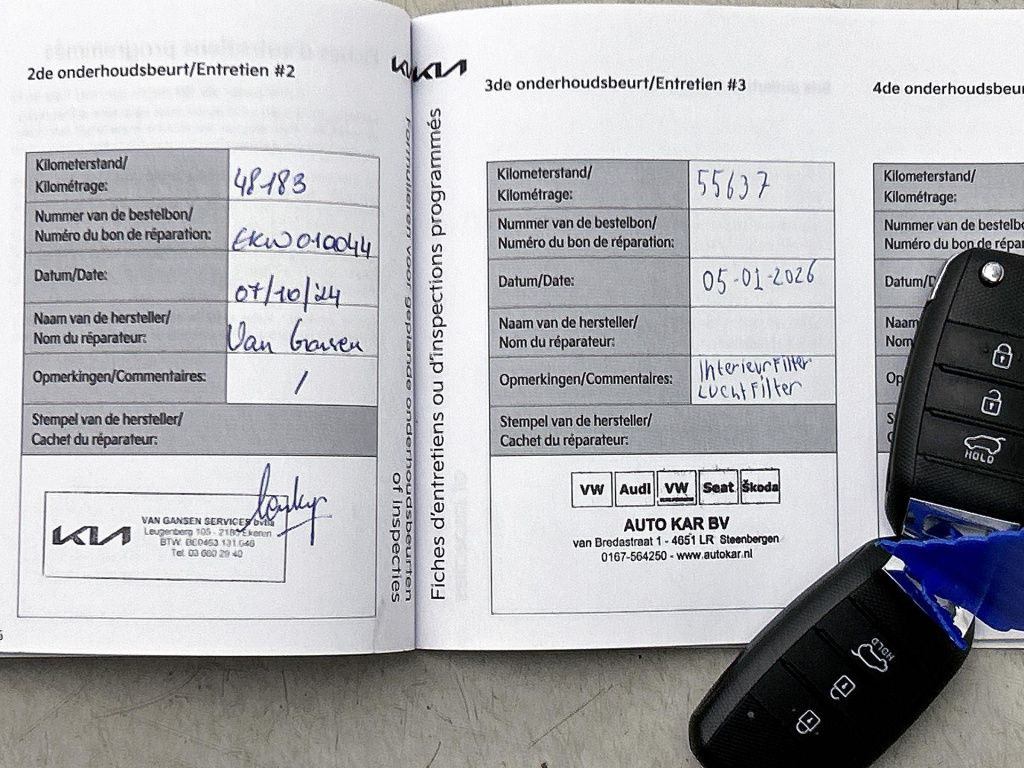 2de onderhoudsbeurt/Entretien #2
Kilometerstand/
Kilométrage:
48183
Nummer van de bestelbon/
Numéro du bon de réparation:
EKW010044
Datum/Date:
07/10/24
Naam van de hersteller/
Nom du réparateur:
Van Gansen
Opmerkingen/Commentaires:
/
Stempel van de hersteller/
Cachet du réparateur:
KIA
VAN GANSEN SERVICES bvba
Leugenberg 105 - 2180 Ekeren
BTW: BE0463.131.646
Tel. 03 660 29 40
Formulieren voor geplande onderhoudsbeurten
of inspecties
KIA
Fiches d'entretiens ou d'inspections programmés
3de onderhoudsbeurt/Entretien #3
Kilometerstand/
Kilométrage:
55637
Nummer van de bestelbon/
Numéro du bon de réparation:
Datum/Date:
05-01-2026
Naam van de hersteller/
Nom du réparateur:
Opmerkingen/Commentaires:
InterieurFilter
LuchtFilter
Stempel van de hersteller/
Cachet du réparateur:
VW Audi VW Seat Škoda
AUTO KAR BV
van Bredastraat 1 - 4651 LR Steenbergen
0167-564250 - www.autokar.nl
4de onderhoudsbeur
Kilometerstand/
Kilométrage:
Nummer van de bestelbo
Numéro du bon de répa
Datum/D
Naam
Nom
Op
HOLD
HOLD